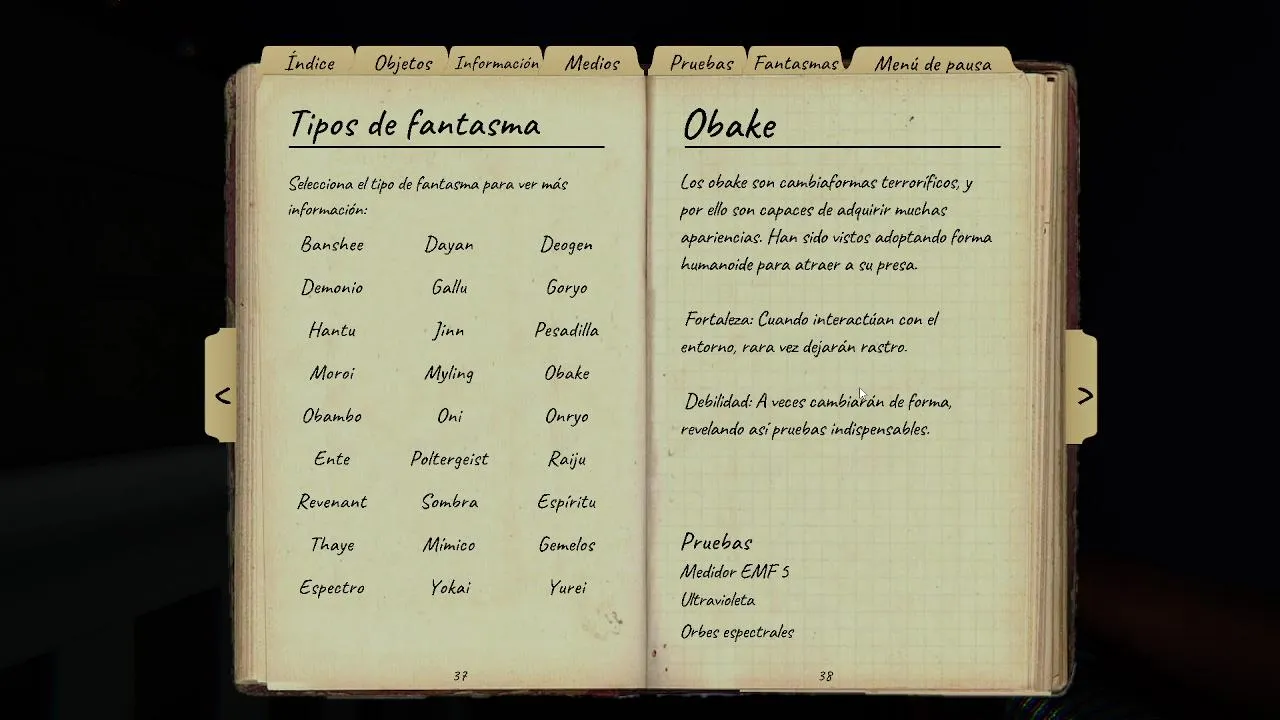 Índice Objetos Información Medios Pruebas Fantasmas Menú de pausa
Tipos de fantasma
Selecciona el tipo de fantasma para ver más
información:
Banshee Dayan Deogen
Demonio Gallu Goryo
Hantu Jinn Pesadilla
Moroi Myling Obake
Obambo Oni Onryo
Ente Poltergeist Raiju
Revenant Sombra Espíritu
Thaye Mímico Gemelos
Espectro Yokai Yurei
37
<
Obake
Los obake son cambiaformas terroríficos, y
por ello son capaces de adquirir muchas
apariencias. Han sido vistos adoptando forma
humanoide para atraer a su presa.
Fortaleza: Cuando interactúan con el
entorno, rara vez dejarán rastro.
Debilidad: A veces cambiarán de forma,
revelando así pruebas indispensables.
Pruebas
Medidor EMF 5
Ultravioleta
Orbes espectrales
38
>